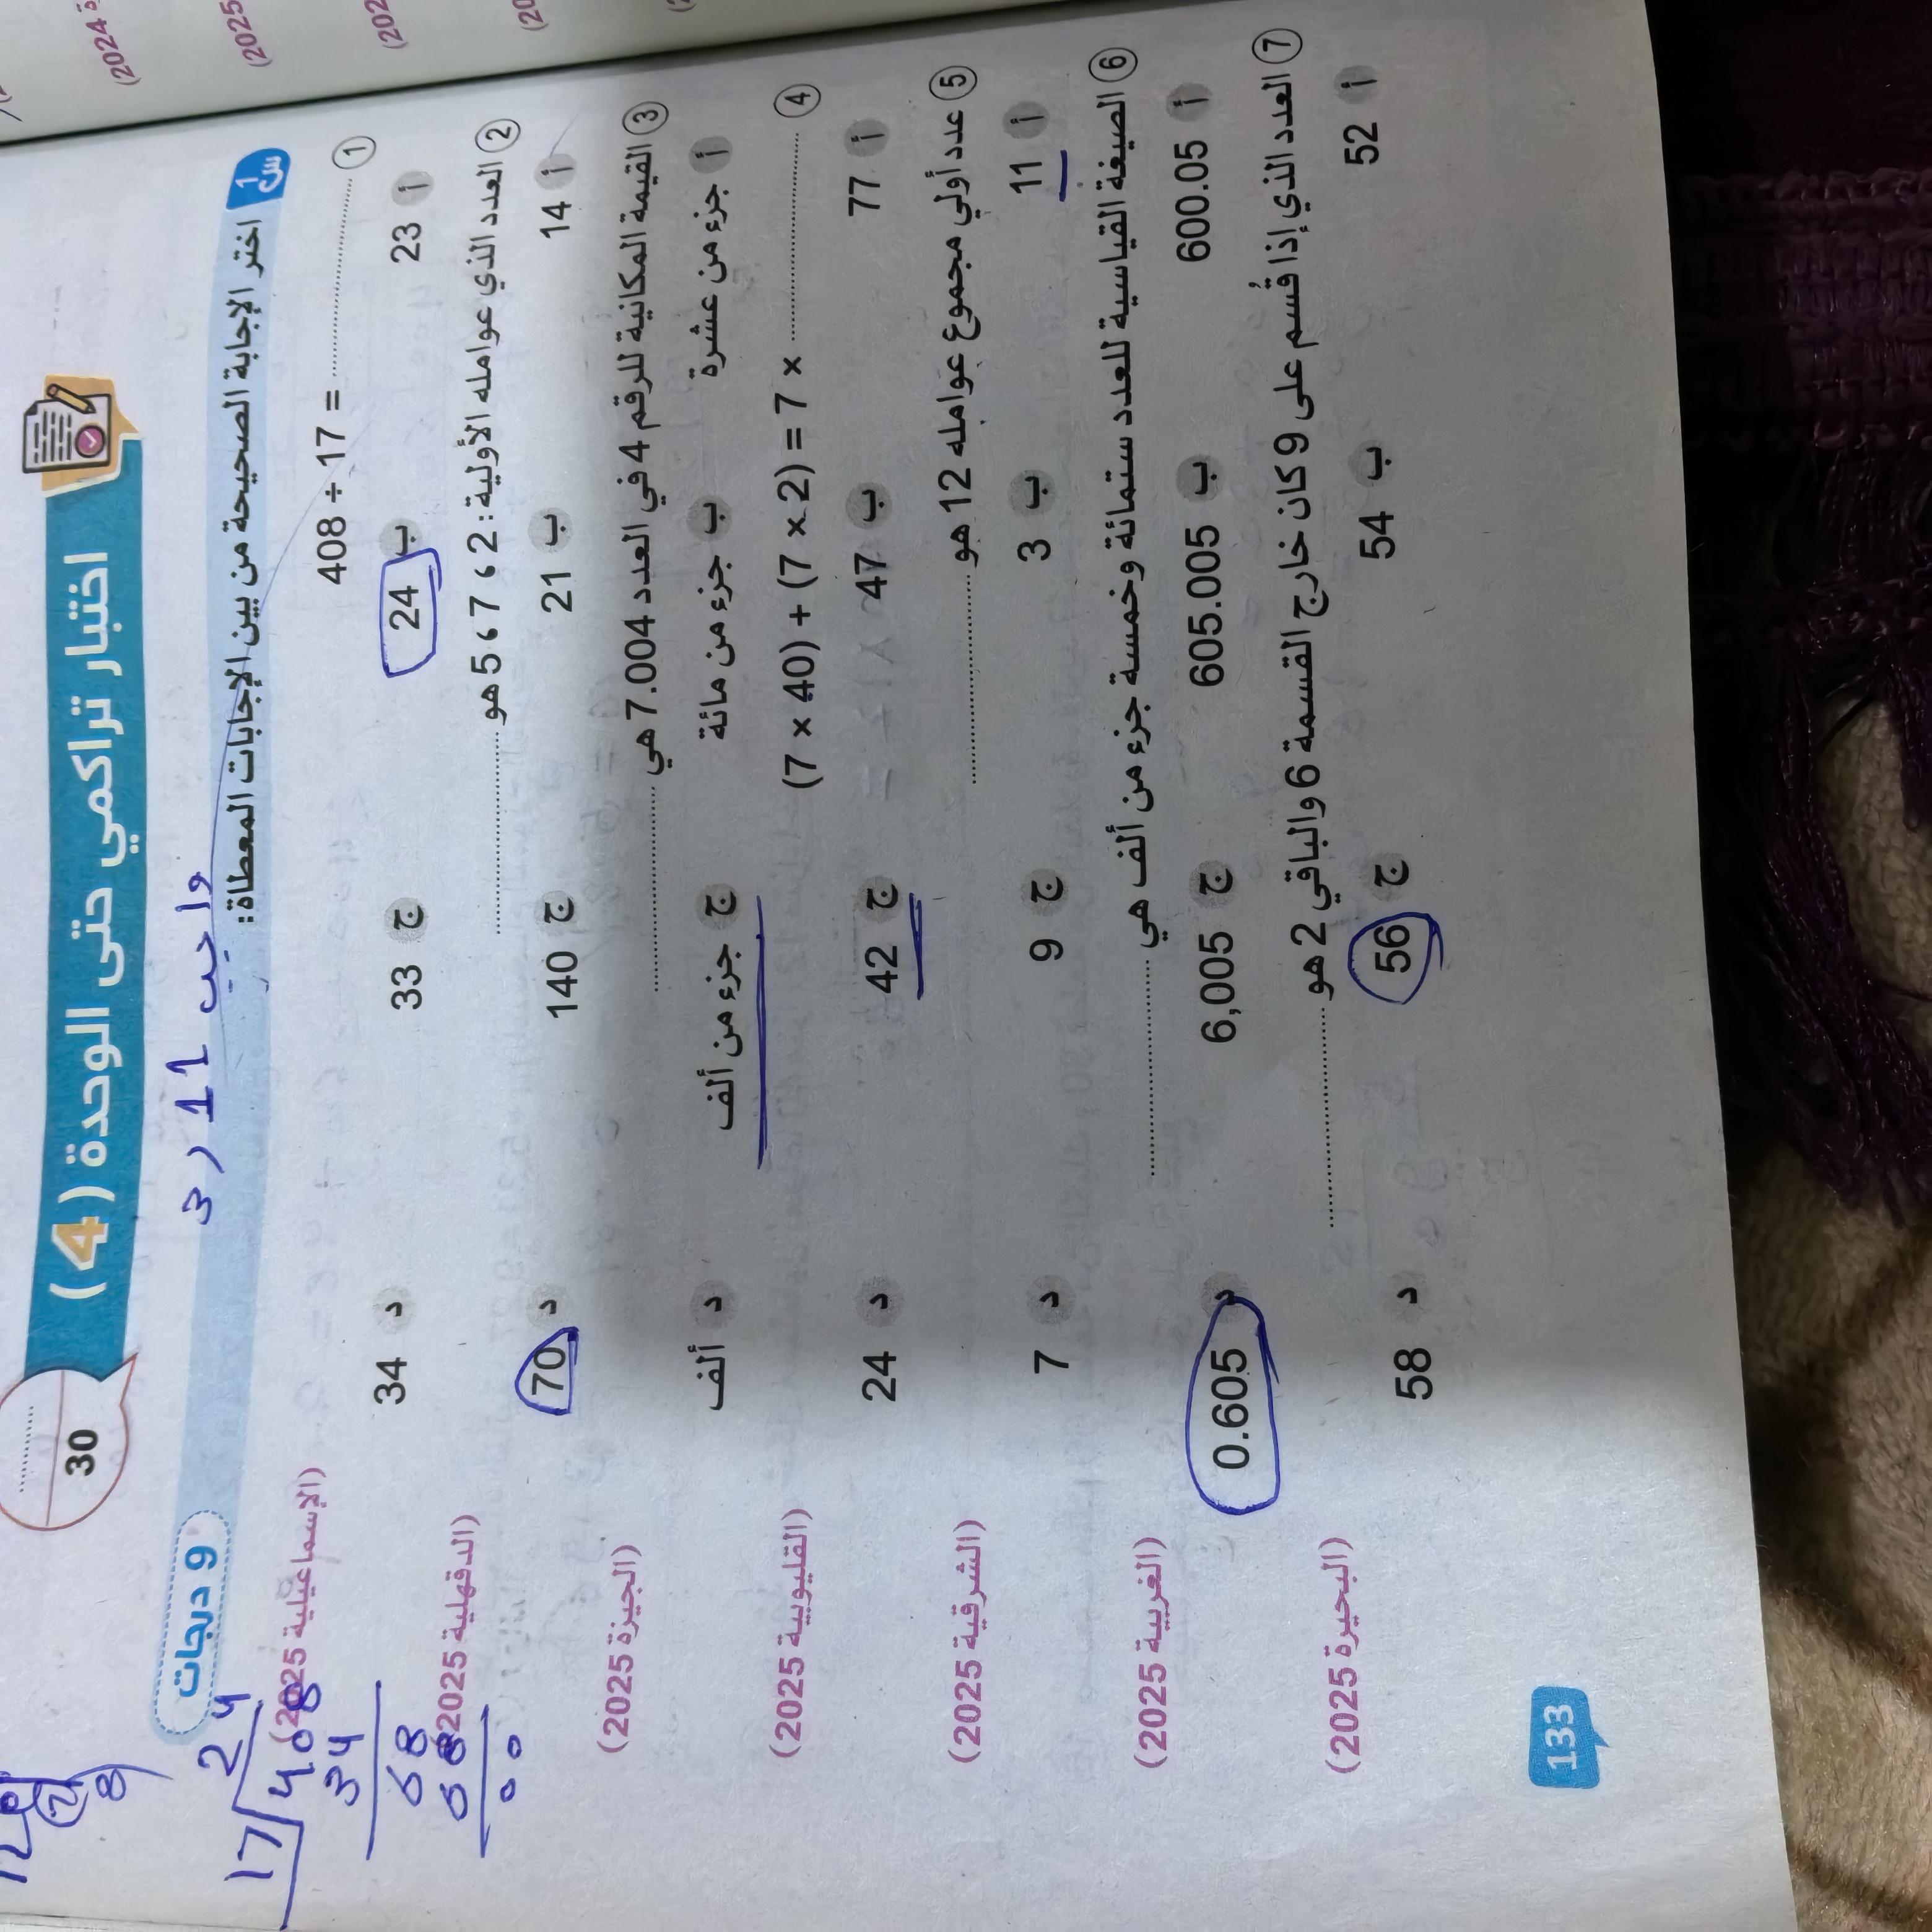 اختبار تراكمي حتى الوحدة (4)
30
واجب 11 / 3
س1 اختر الإجابة الصحيحة من بين الإجابات المعطاة:
9 درجات
① 408 ÷ 17 = .................... (الإسماعيلية 2025)
أ 23 ب 24 ج 33 د 34
② العدد الذي عوامله الأولية: 2 ، 7 ، 5 هو .................... (الدقهلية 2025)
أ 14 ب 21 ج 140 د 70
③ القيمة المكانية للرقم 4 في العدد 7.004 هي .................... (الجيزة 2025)
أ جزء من عشرة ب جزء من مائة ج جزء من ألف د ألف
④ (7 × 40) + (7 × 2) = 7 × .................... (القليوبية 2025)
أ 77 ب 47 ج 42 د 24
⑤ عدد أولي مجموع عوامله 12 هو .................... (الشرقية 2025)
أ 11 ب 3 ج 9 د 7
⑥ الصيغة القياسية للعدد ستمائة وخمسة جزء من ألف هي .................... (الغربية 2025)
أ 600.05 ب 605.005 ج 6,005 د 0.605
⑦ العدد الذي إذا قُسم على 9 كان خارج القسمة 6 والباقي 2 هو .................... (البحيرة 2025)
أ 52 ب 54 ج 56 د 58
24
17 408
34
68
68
00
133
(2025